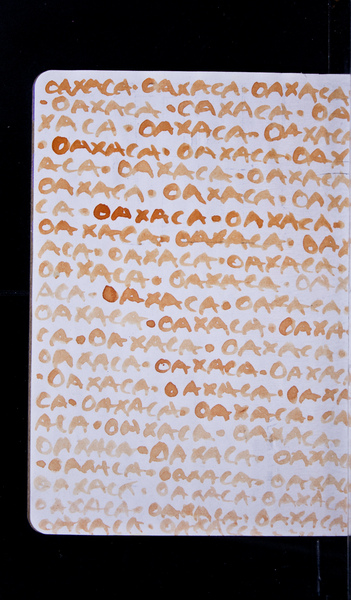 OAXACA · OAXACA · OAXACA
· OAXACA · OAXACA · OA
XACA · OAXACA · OAXAC
· OAXACA · OAXACA · OAX
ACA · OAXACA · OAXACA
OAXACA · OAXACA · OAX
CA · OAXACA · OAXACA ·
OAXACA · OAXACA · OAX
ACA · OAXACA · OAXACA
OAXACA · OAXACA · OA
ACA · OAXACA · OAXACA
OAXACA · OAXACA · OAXA
CA · OAXACA · OAXACA
· OAXACA · OAXACA · OAXA
· OAXACA · OAXACA · OAXA
CA · OAXACA · OAXACA · OA
ACA · OAXACA · OAXACA
OAXACA · OAXACA · OAXAC
· OAXACA · OAXACA · OA
OAXACA · OAXACA · OAXAC
OAXACA · OAXACA · OAXACA